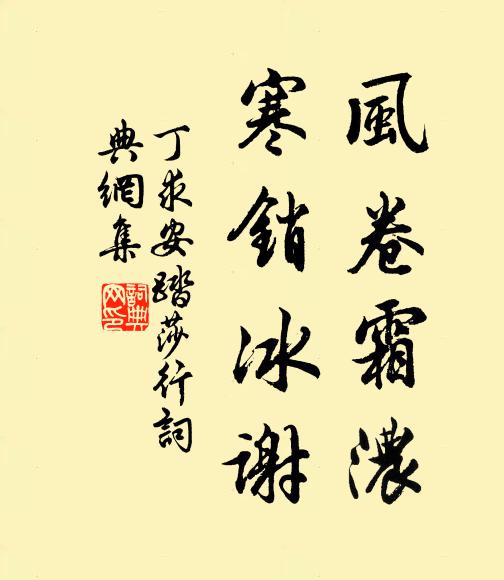 風卷霜濃
寒銷冰谢
丁求安踏莎行詞
典網集
詞典
网印